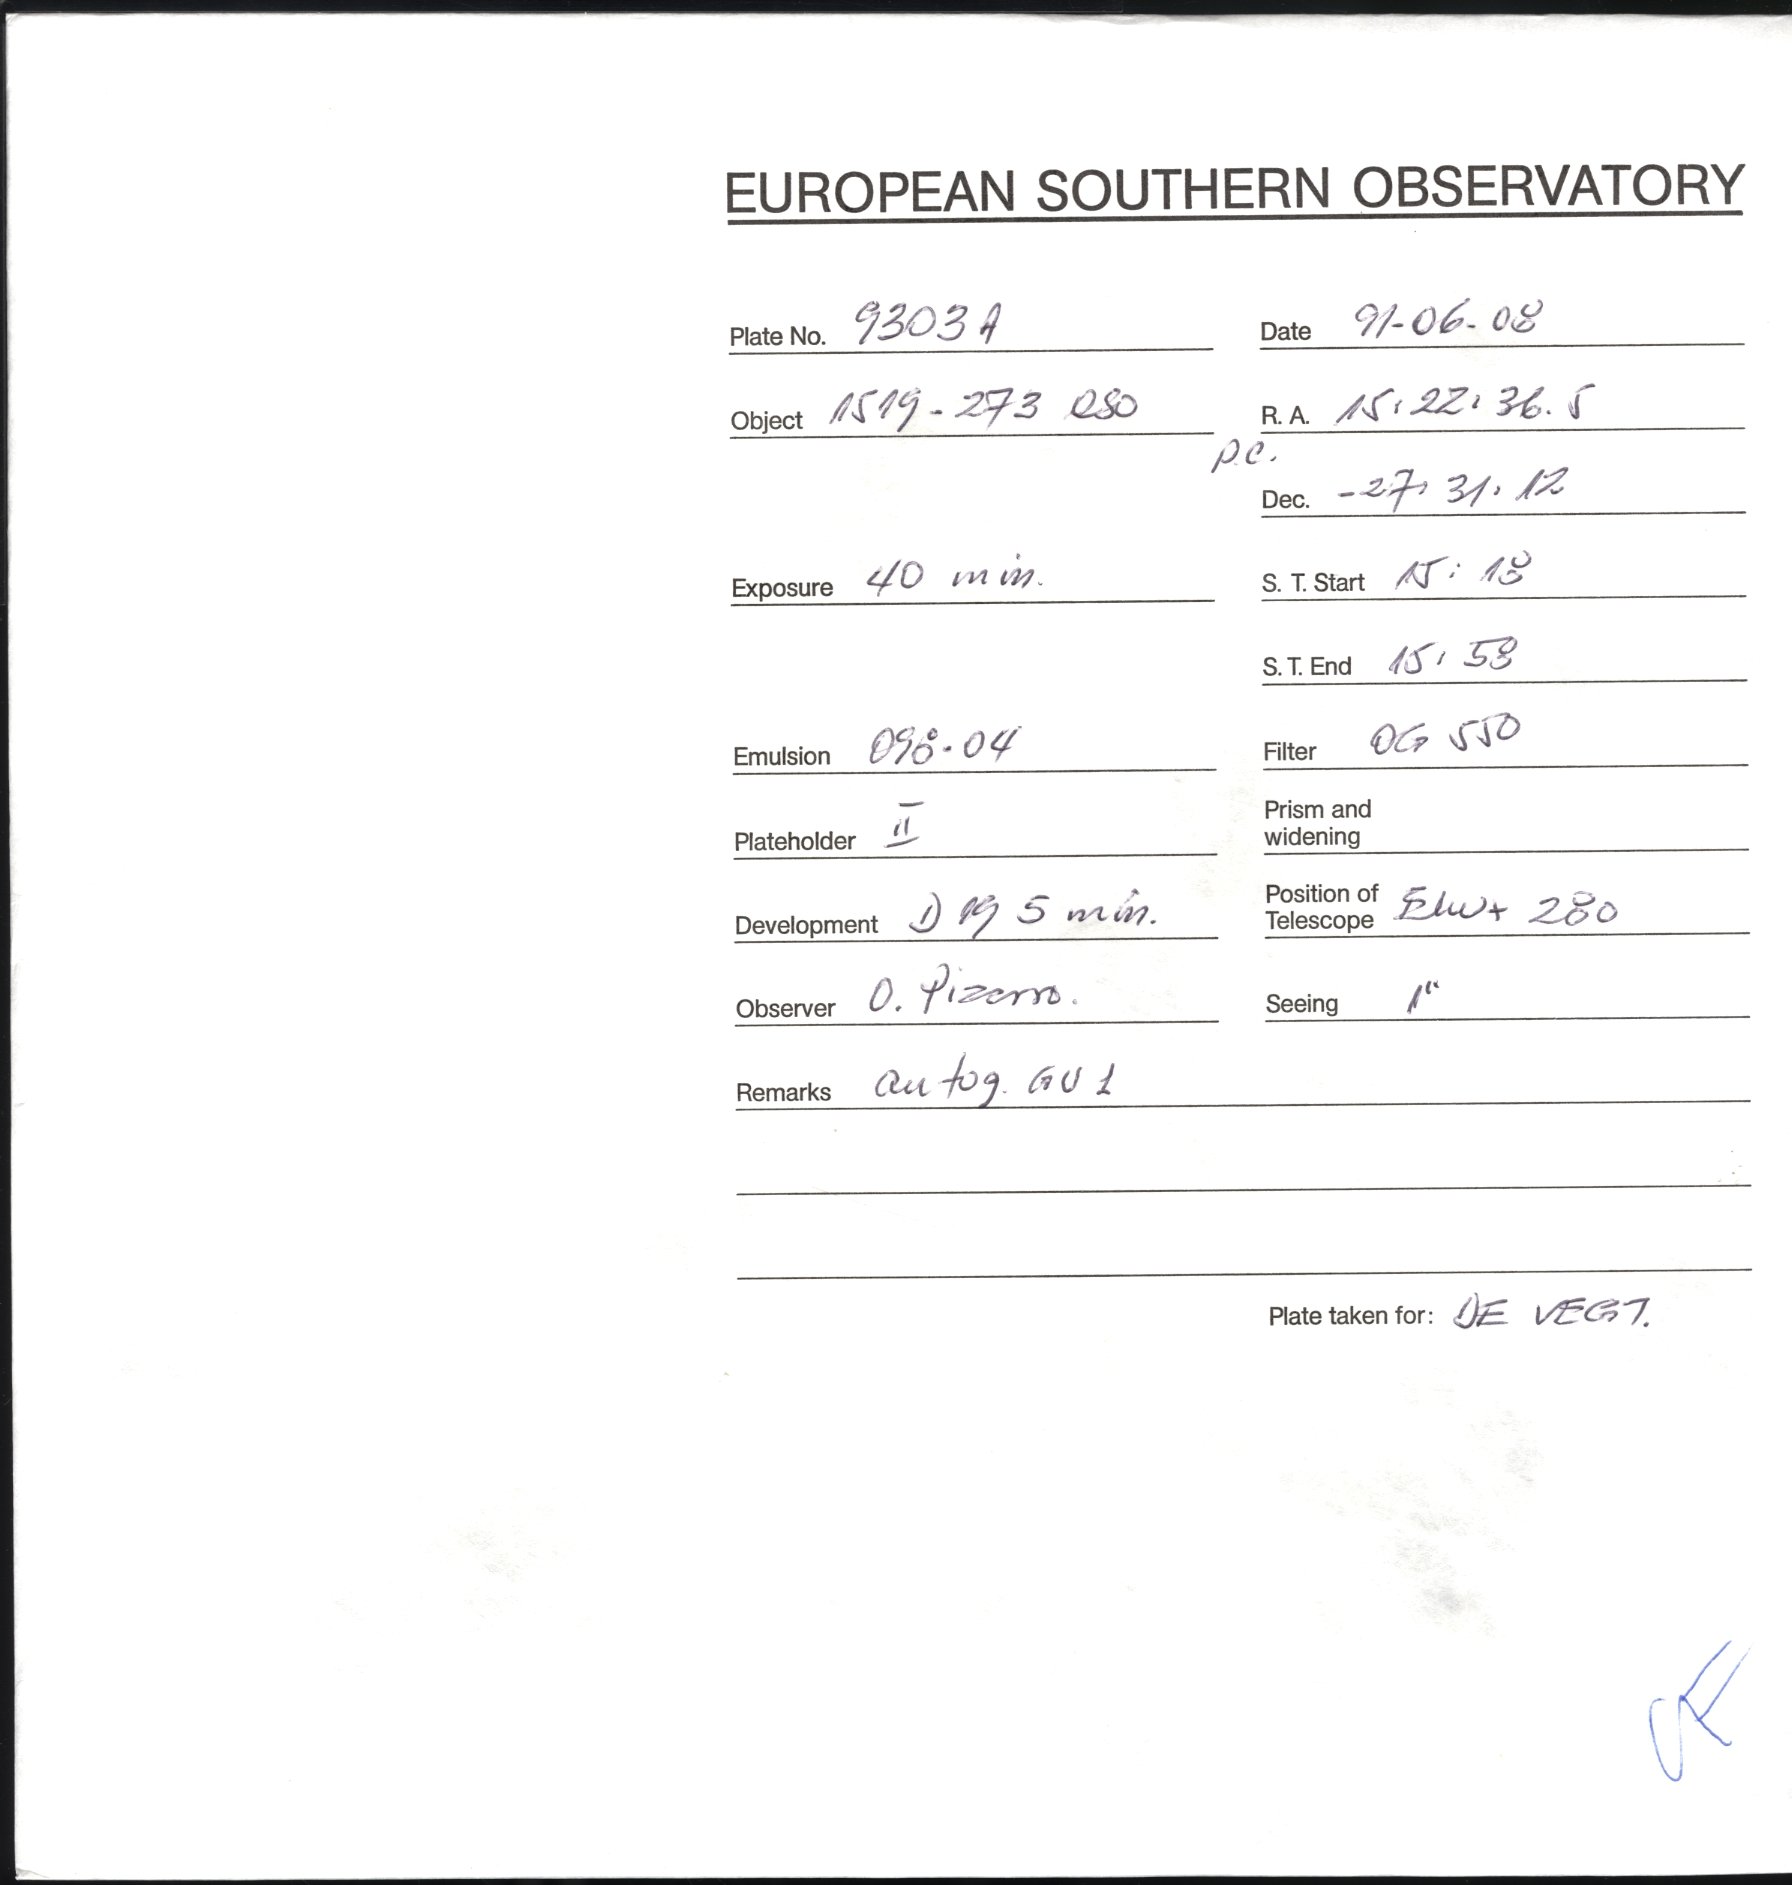 EUROPEAN SOUTHERN OBSERVATORY
Plate No. 9303A Date 91-06-08
Object 1519-273 QSO R. A. 15:22:36.5
p.c.
Dec. -27:31:12
Exposure 40 min. S. T. Start 15:18
S. T. End 15:58
Emulsion 098-04 Filter OG 550
Plateholder II Prism and
widening
Development D19 5 min. Position of
Telescope 280
Observer O. Pizarro. Seeing 1"
Remarks autog. GU 1
Plate taken for: DE VEGT.